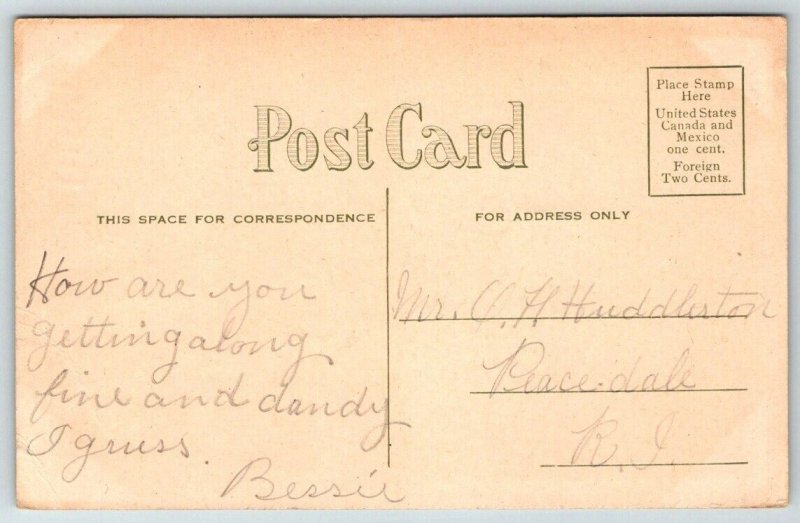 Post Card
Place Stamp
Here
United States
Canada and
Mexico
one cent.
Foreign
Two Cents.
THIS SPACE FOR CORRESPONDENCE
FOR ADDRESS ONLY
How are you
getting along
fine and dandy
I guess.
Bessie
Mr. H Huddleston
Peace-dale
R.I.